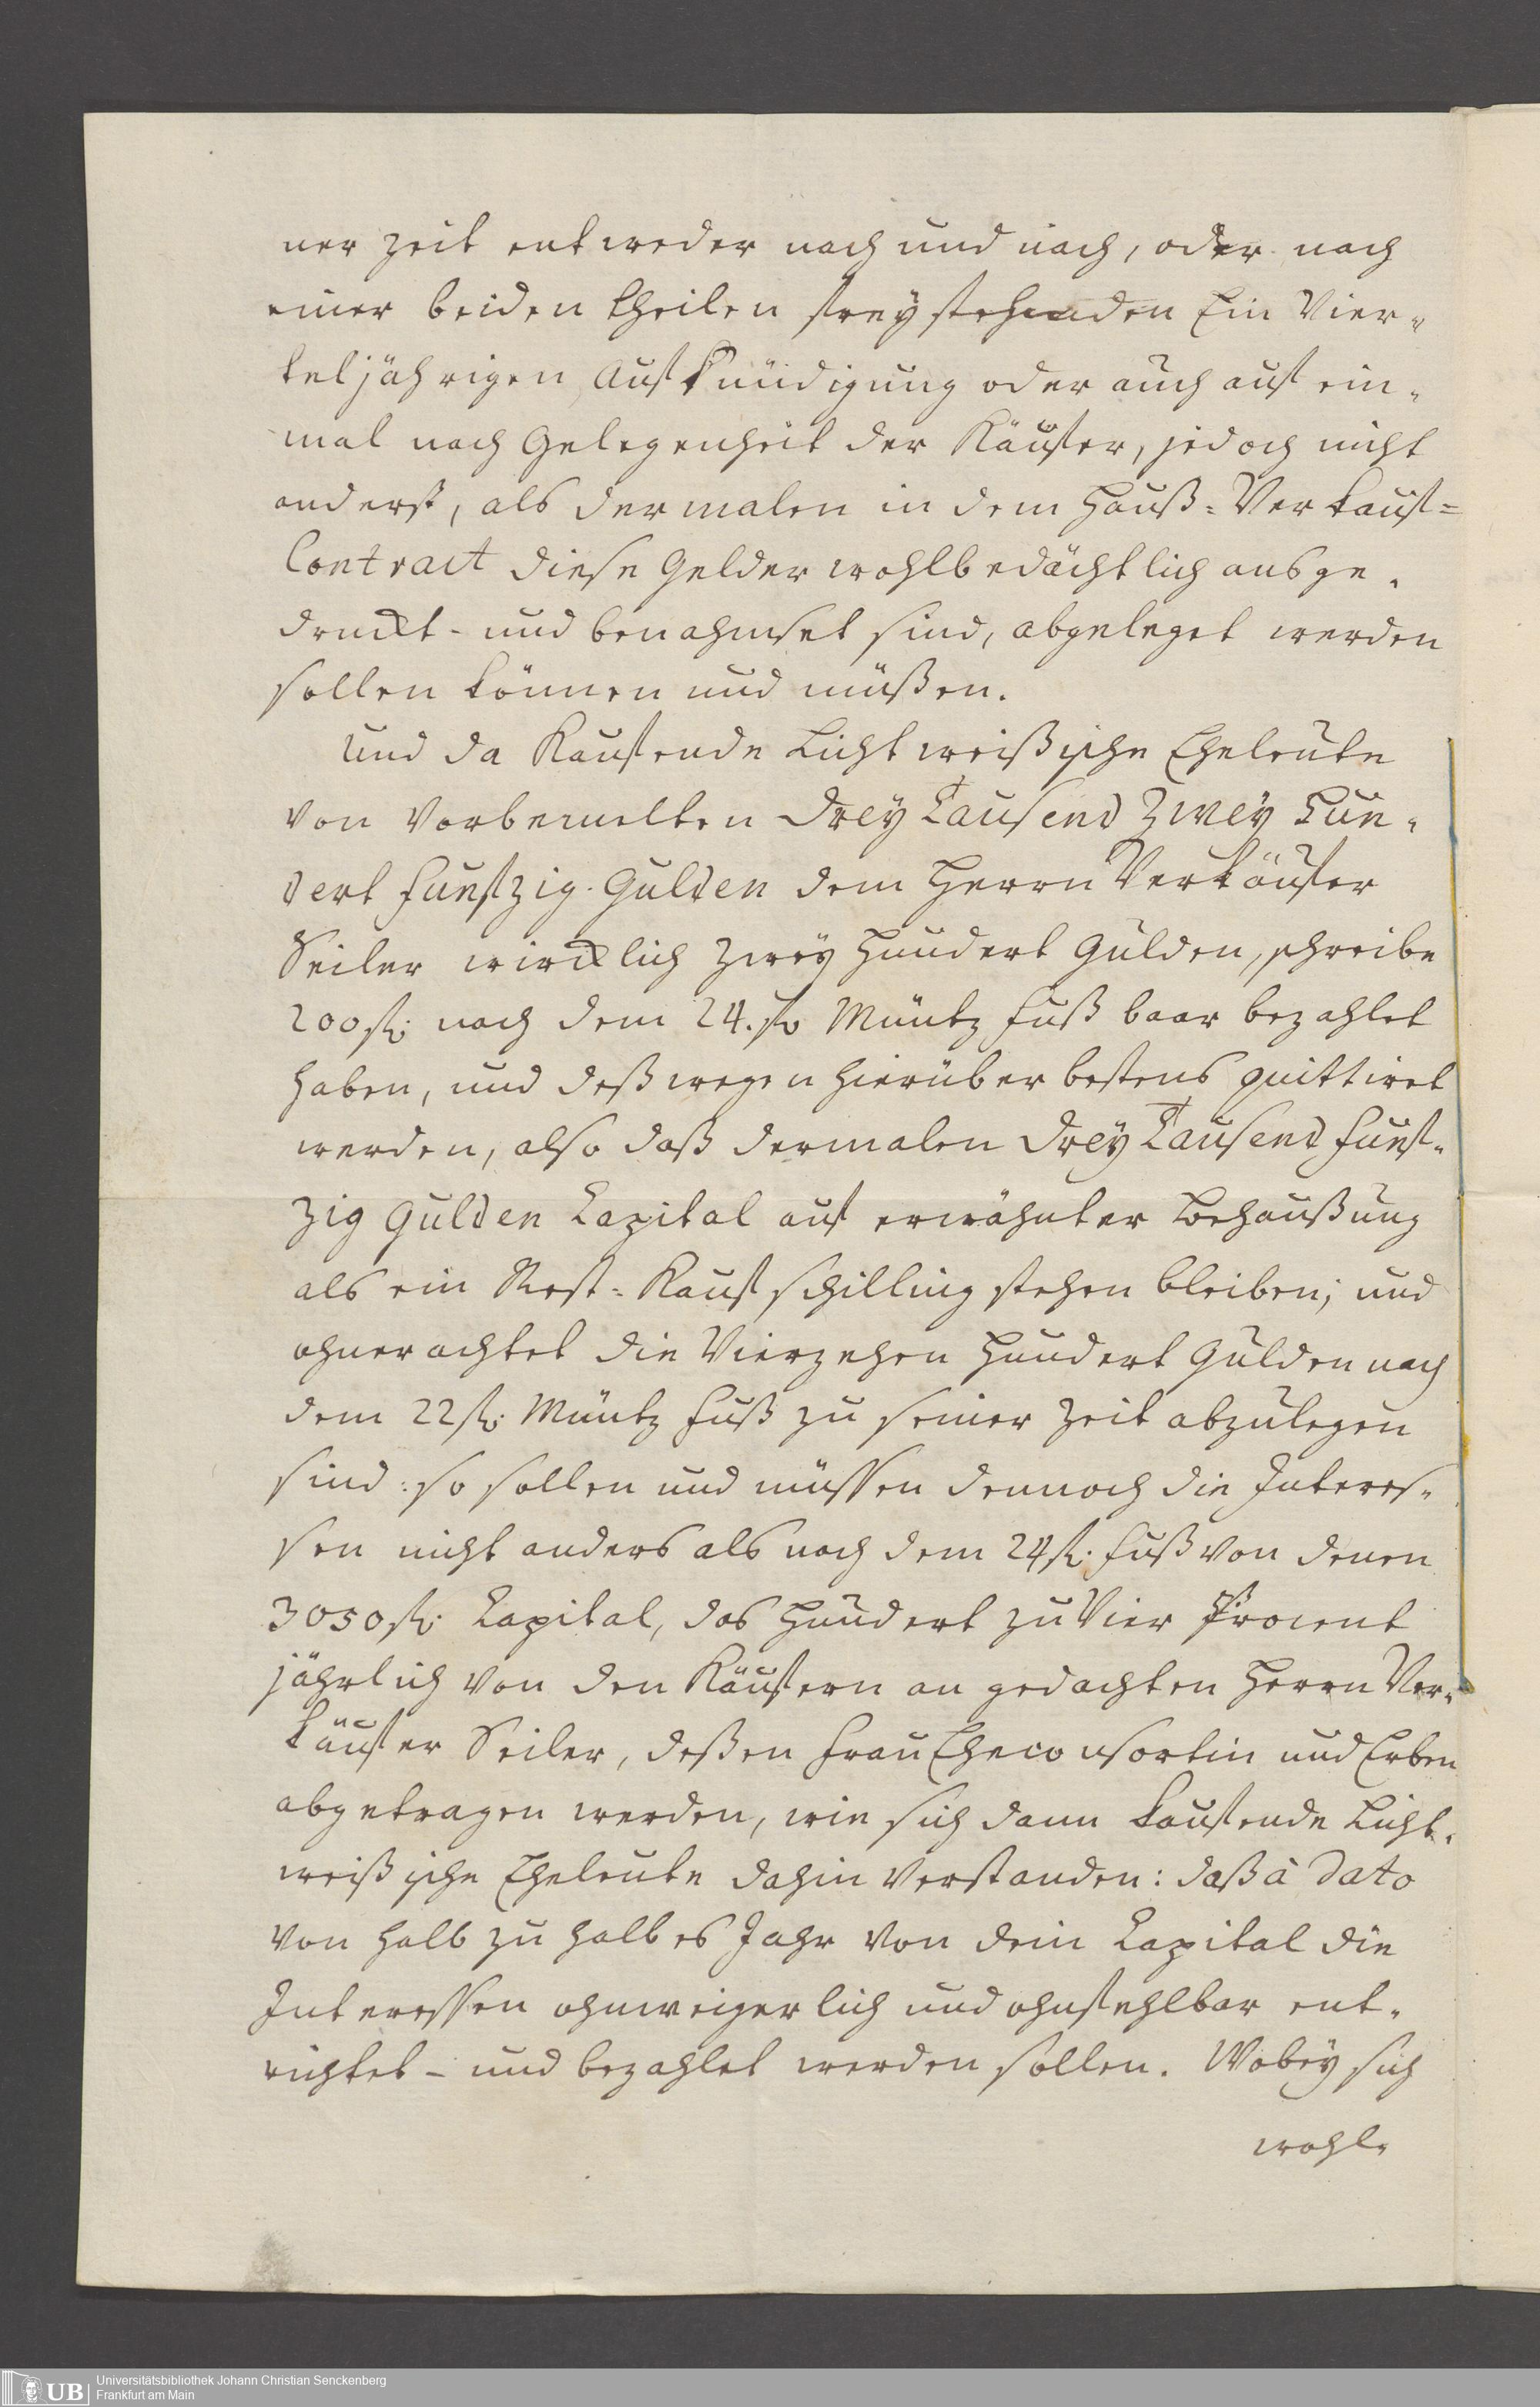 ner Zeit entweder nach und nach, oder nach
einer beiden Theilen freystehenden Ein Vier-
teljährigen Aufkündigung oder auch auf ein-
mal nach Gelegenheit der Käufer, jedoch nicht
anderst, als dermalen in dem Hauß-Verkauf-
Contract diese Gelder wohlbedächtlich ausge-
druckt- und benahmset sind, abgeleget werden
sollen können und müßen.
Und da Kaufende Lichtweißische Eheleute
von vorbemelten Drey Tausend Zwey Hun-
dert Funfzig Gulden dem Herrn Verkäufer
Seiler wircklich Zwey Hundert Gulden, schreibe
200 fl. nach dem 24. fl Müntz Fuß baar bezahlet
haben, und deßwegen hierüber bestens quittiret
werden, also daß dermalen Drey Tausend Funf-
zig Gulden Capital auf erwähnter Behaußung
als ein Rest-Kaufschilling stehen bleiben; und
ohnerachtet die Vierzehen Hundert Gulden nach
dem 22 fl. Müntz Fuß zu seiner Zeit abzulegen
sind: so sollen und müssen dennoch die Interes-
sen nicht anders als nach dem 24 fl. Fuß von denen
3050 fl. Capital, das Hundert zu Vier Procent
jährlich von den Käufern an gedachten Herrn Ver-
käufer Seiler, deßen Frau Eheconsortin und Erben
abgetragen werden, wie sich dann kaufende Licht-
weißische Eheleute dahin verstanden: daß à dato
von halb zu halbes Jahr von dem Capital die
Interessen ohnweigerlich und ohnfehlbar ent-
richtet- und bezahlet werden sollen. Wobey sich
wohl-
UB
Universitätsbibliothek Johann Christian Senckenberg
Frankfurt am Main